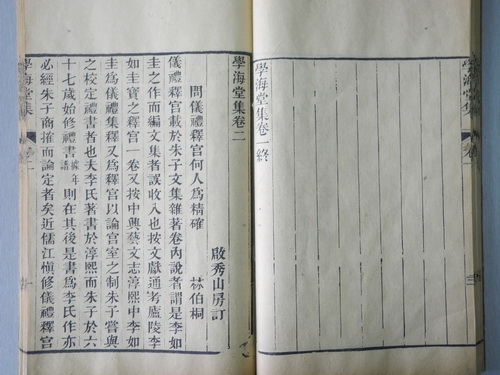 學海堂集卷一終
學海堂集
三
學海堂集卷二
啟秀山房訂
問儀禮釋宮何人爲精確
林伯桐
儀禮釋宮載於朱子文集雜著卷內說者謂是李如
圭之作而編文集者誤收入也按文獻通考廬陵李
如圭寶之釋宮一卷又按中興藝文志淳熙中李如
圭爲儀禮集釋又爲釋宮以論宮室之制朱子嘗與
之校定禮書者也夫李氏著書於淳熙而朱子於六
十七歲始修禮書據年譜則在其後是書爲李氏作亦
必經朱子商搉而論定者矣近儒江愼修儀禮釋宮
學海堂集
卷二